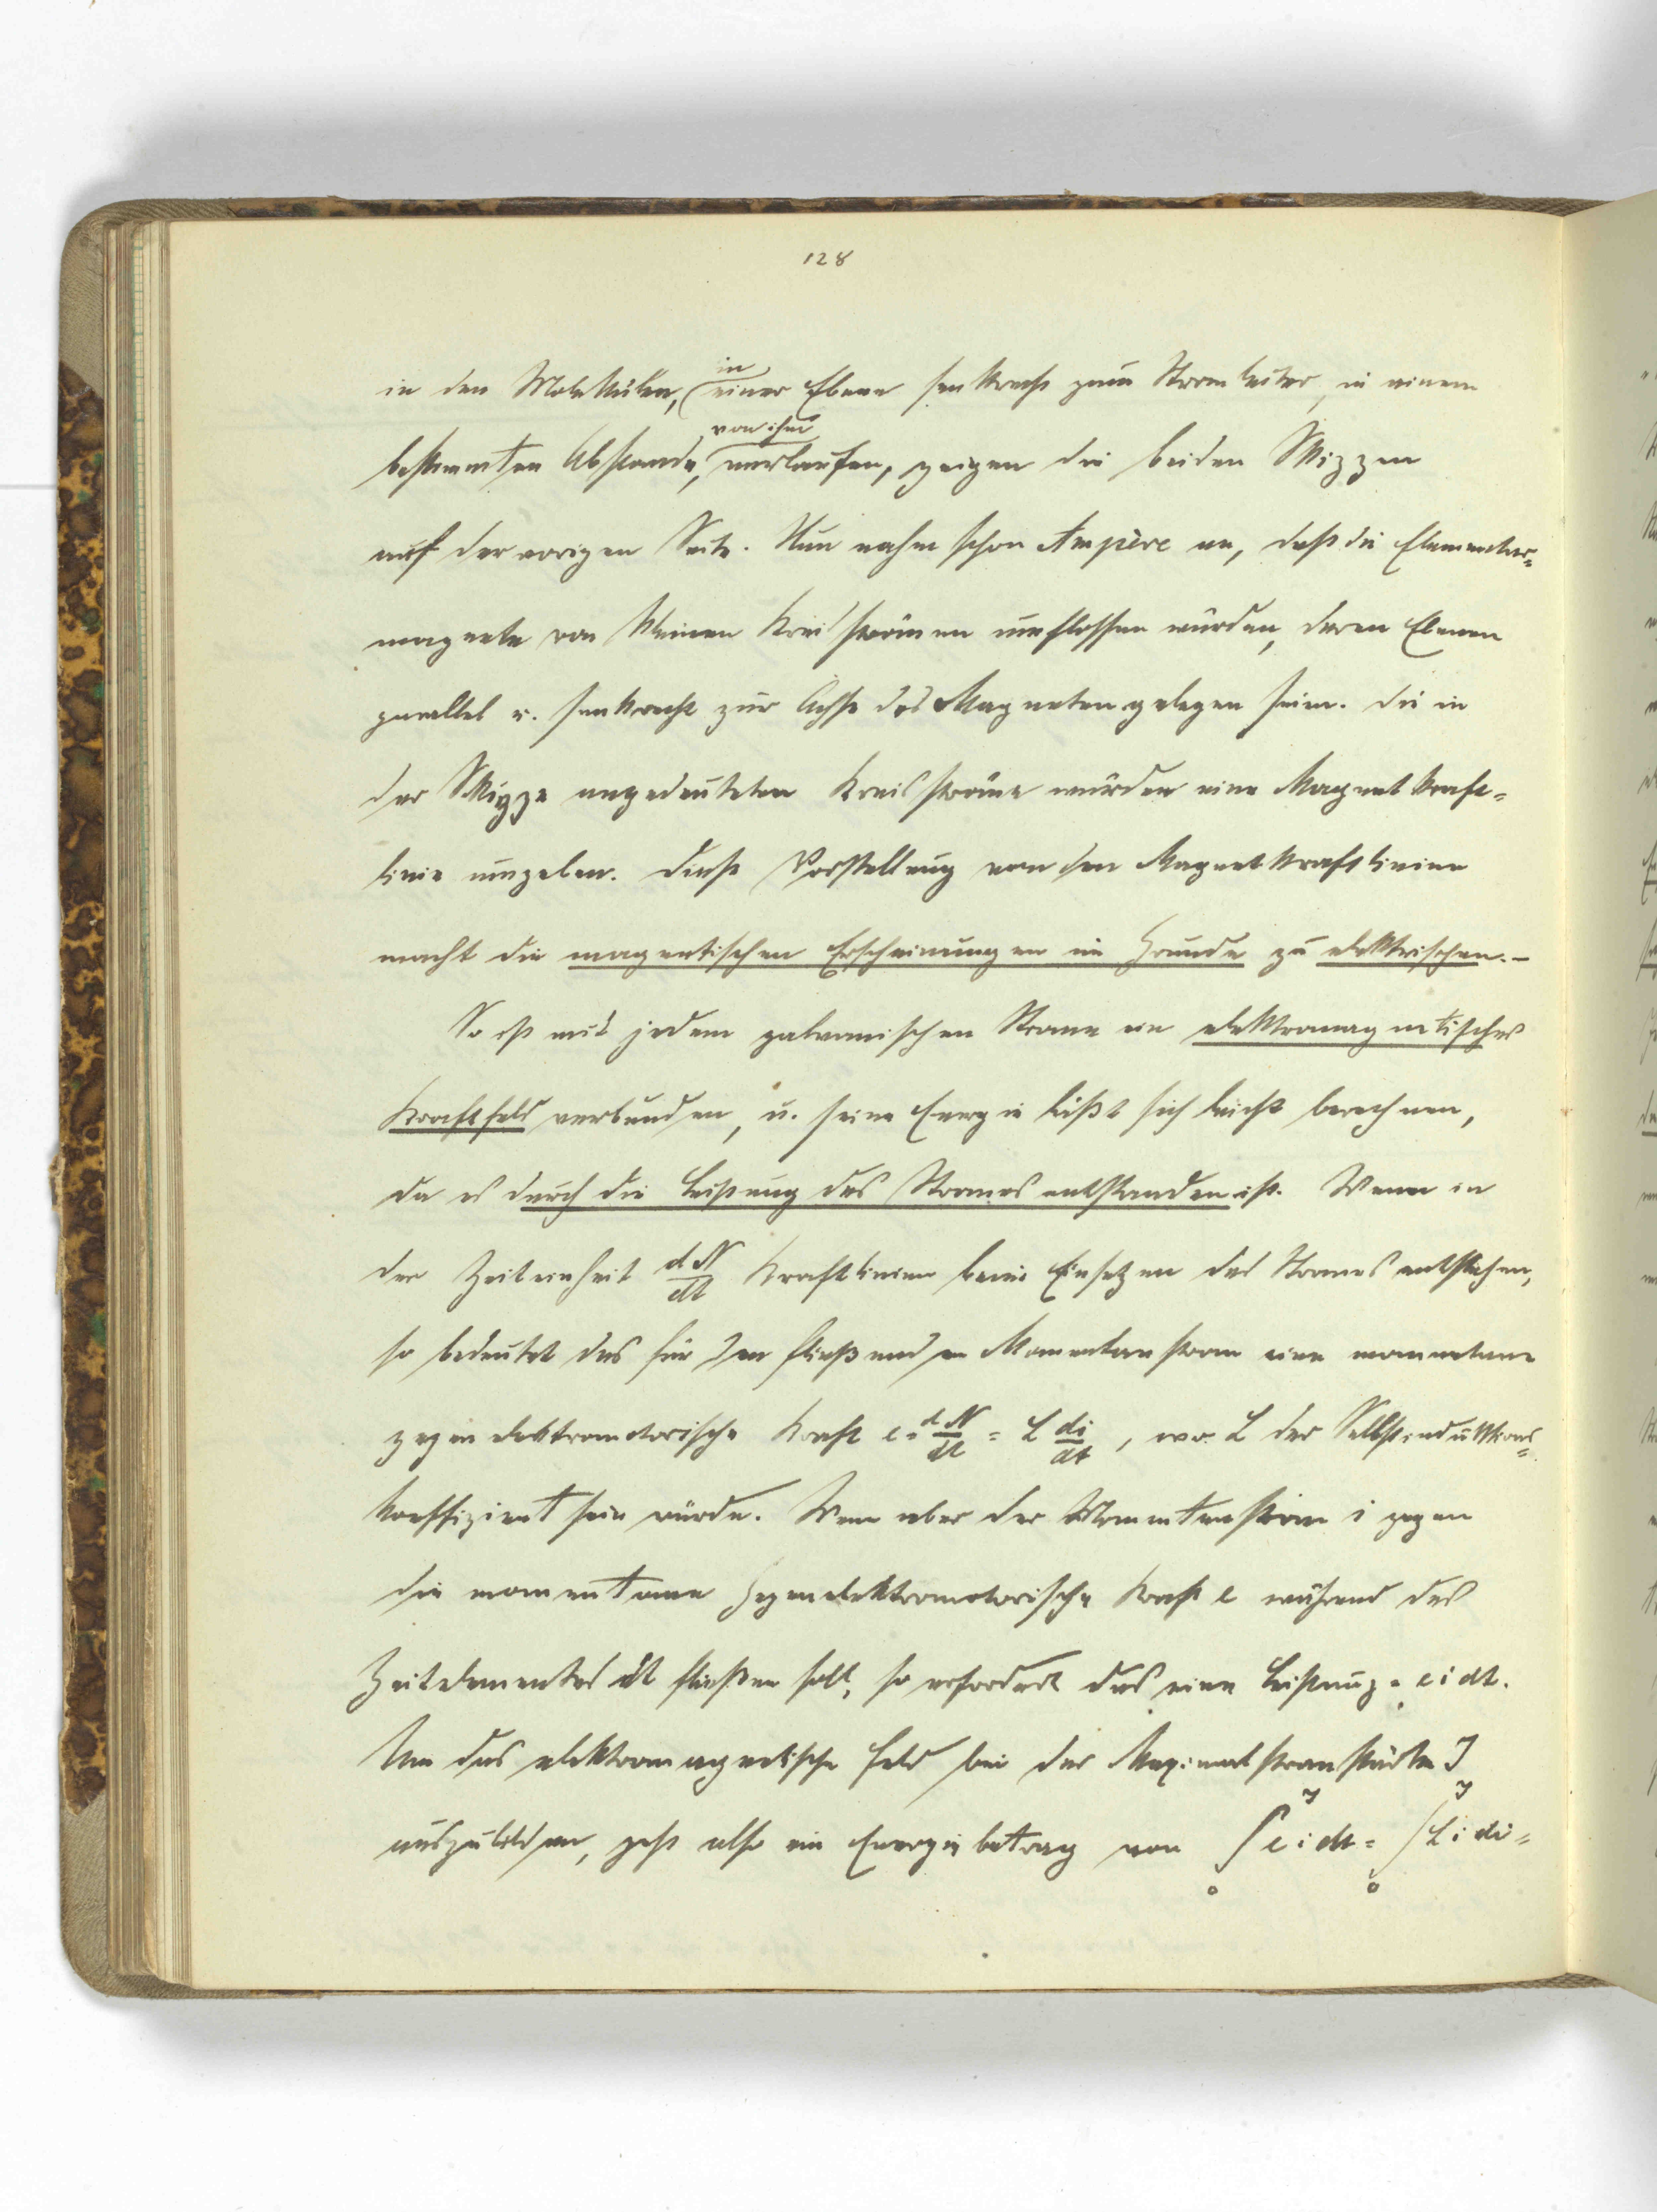 128
in den Molekülen, in einer Ebene senkrecht zum Stromleiter, in einem
bestimmten Abstande, von ihm verlaufen, zeigen die beiden Skizzen
auf der vorigen Seite. Nun nahm schon Ampère an, daß die Elementar=
magnete von kleinen Kreisströmen umflossen würden, deren Ebenen
parallel u. senkrecht zur Achse des Magneten gelegen seien. Die in
der Skizze angedeuteten Kreisströme würden eine Magnetkraft=
linie umgeben. Diese Vorstellung von den Magnetkraftlinien
macht die magnetischen Erscheinungen im Grunde zu elektrischen.-
So ist mit jedem galvanischen Strome ein elektromagnetisches
Kraftfeld verbunden, u. seine Energie läßt sich leicht berechnen,
da es durch die Leistung des Stromes entstanden ist. Wenn in
der Zeiteinheit dN/dt Kraftlinien beim Einsetzen des Stromes entstehen,
so bedeutet das für den fließenden Momentanstrom eine momentane
gegenelektromotorische Kraft e = dN/dt = L di/dt, wo L der Selbstinduktions=
koeffizient sein würde. Wenn aber der Momentanstrom i gegen
die momentane gegenelektromotorische Kraft e während des
Zeitelementes dt fließen soll, so erfordert das eine Leistung = e i dt.
Um das elektromagnetische Feld bei der Maximalstromstärke J
auszubilden, geht also ein Energiebetrag von ∫₀ᴶ e i dt = ∫₀ᴶ L i di =